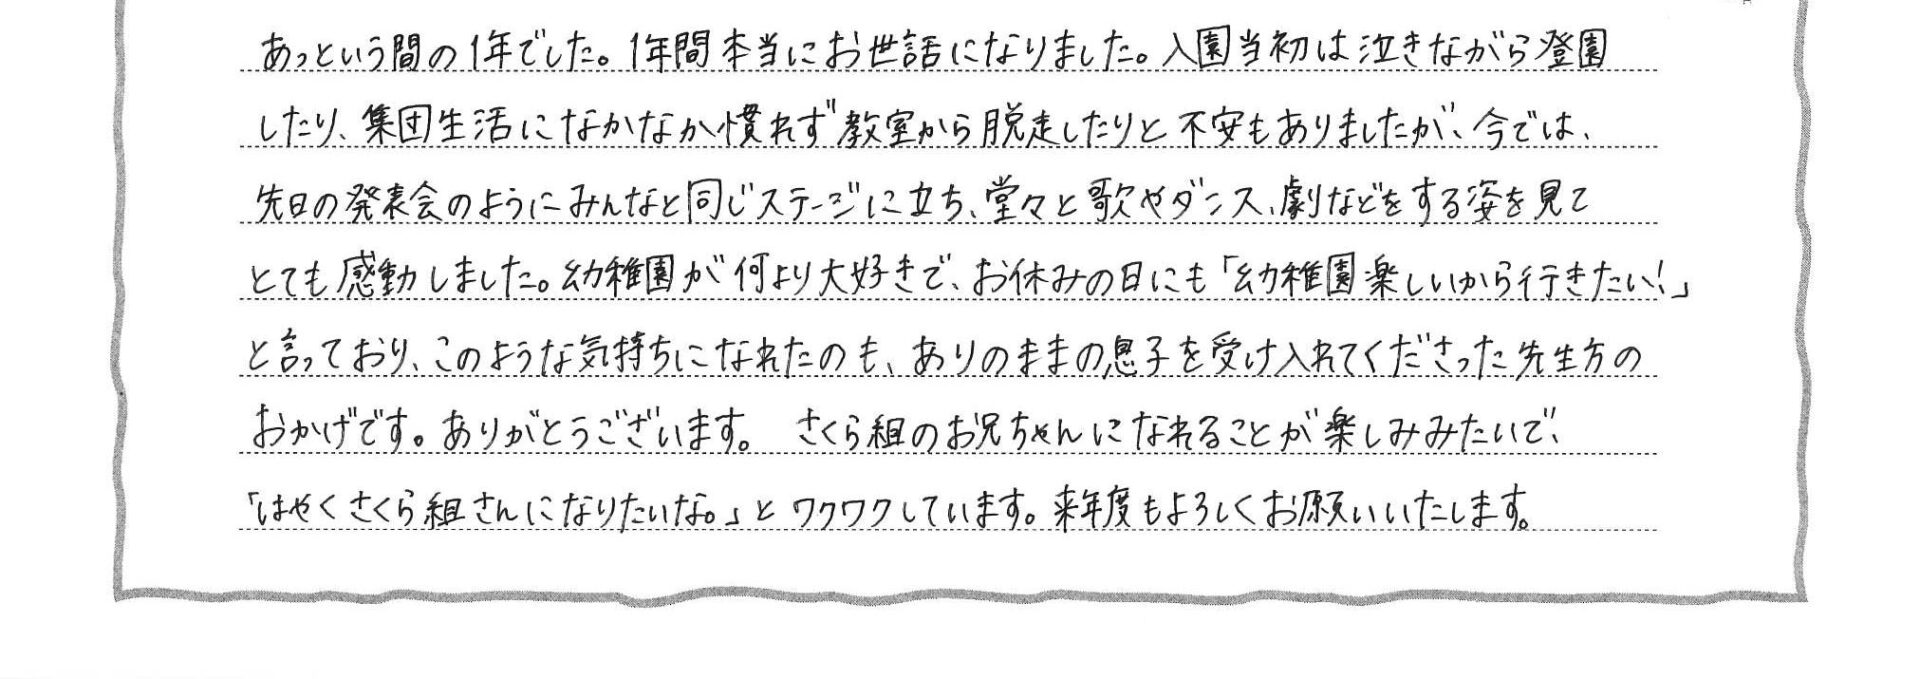 あっという間の1年でした。1年間本当にお世話になりました。入園当初は泣きながら登園
したり、集団生活になかなか慣れず教室から脱走したりと不安もありましたが、今では、
先日の発表会のようにみんなと同じステージに立ち、堂々と歌やダンス、劇などをする姿を見て
とても感動しました。幼稚園が何より大好きで、お休みの日にも「幼稚園楽しいから行きたい!」
と言っており、このような気持ちになれたのも、ありのままの息子を受け入れてくださった先生方の
おかげです。ありがとうございます。 さくら組のお兄ちゃんになれることが楽しみみたいで、
「はやくさくら組さんになりたいな。」とワクワクしています。来年度もよろしくお願いいたします。